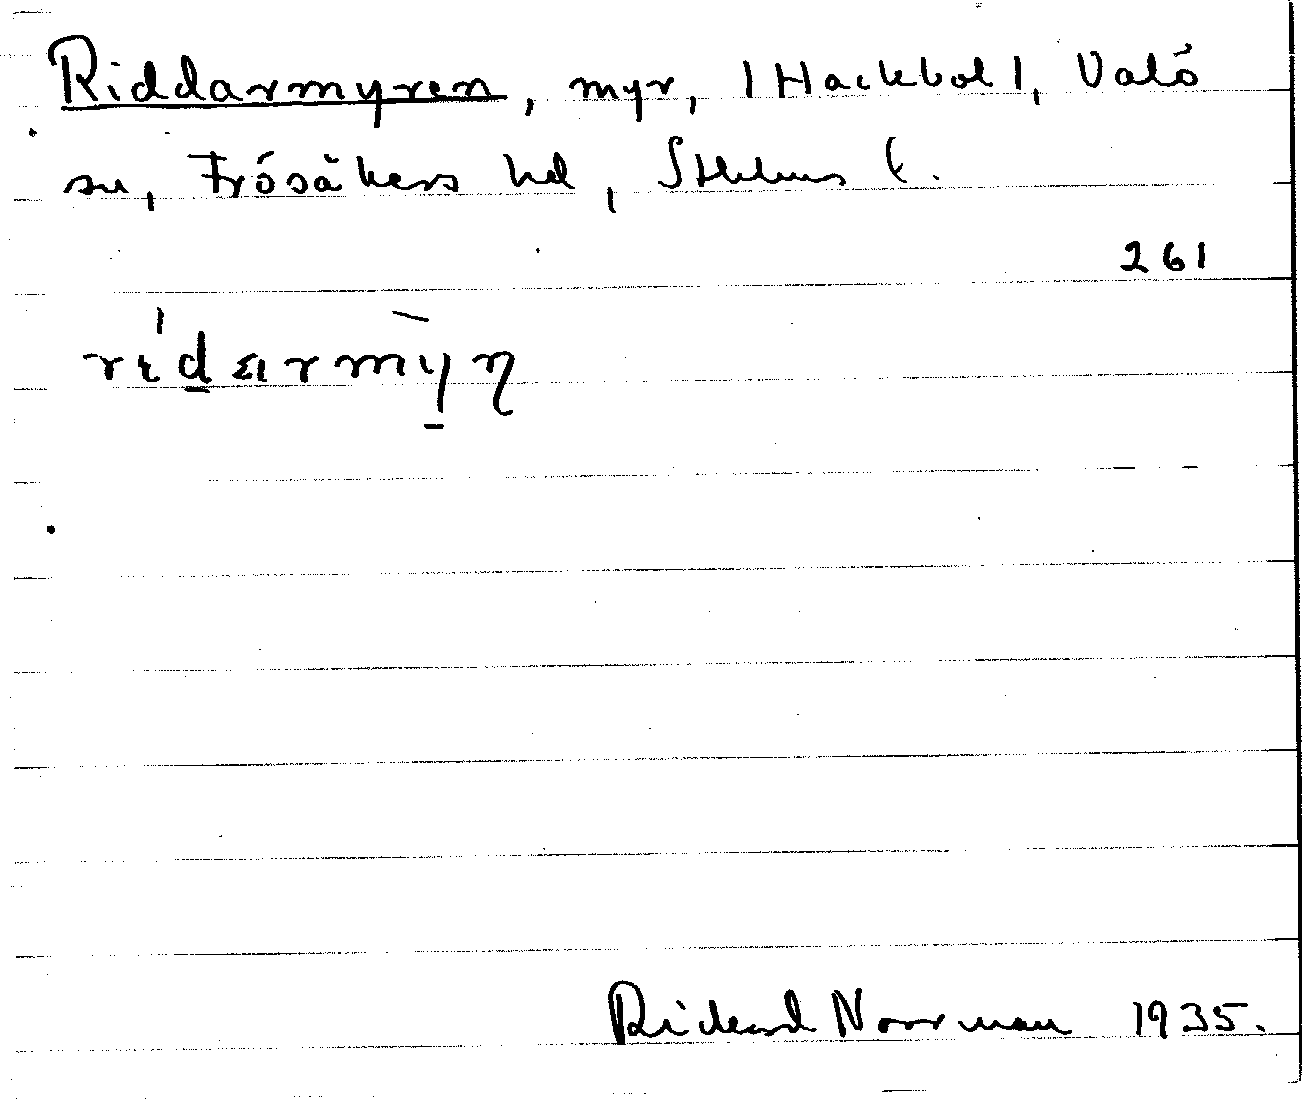 Riddarmyren, myr, /Hackbol/, Valö
sn, Frösåkers hd, Sthlms l.
261
rιdarmyn
Rickard Norrman 1935.